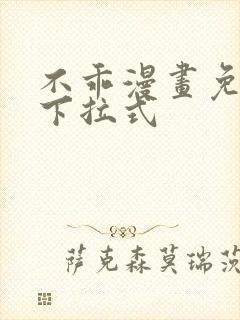 不乖漫畫免
下拉式
萨克森莫瑞茨